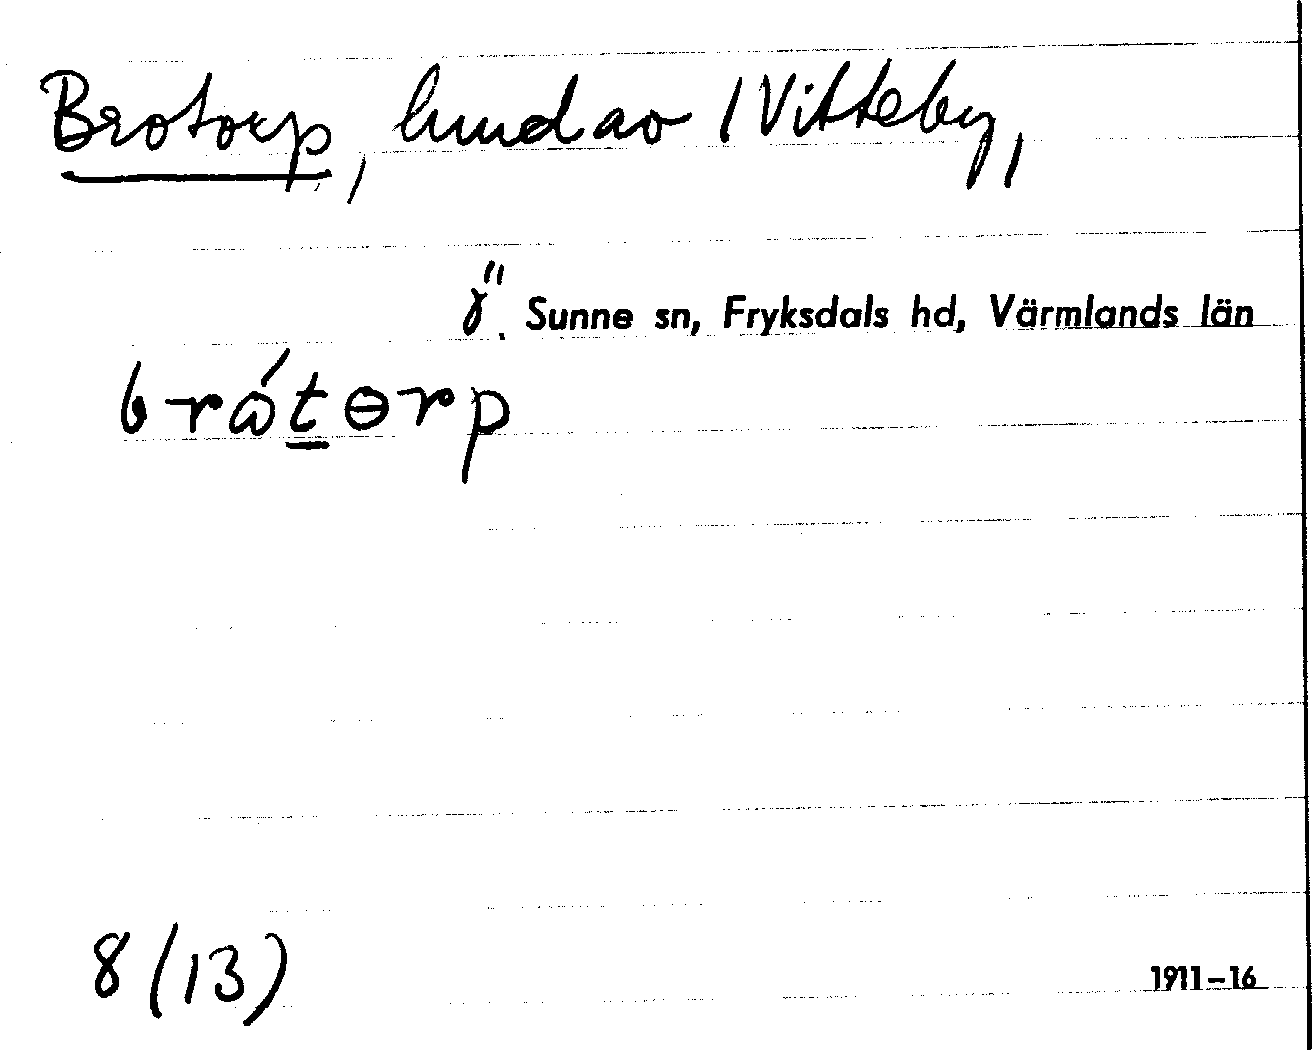 Brotorp, hmd av 1 Vitteby,
Ö. Sunne sn, Fryksdals hd, Värmlands län
brótɵrp
8 (13)
1911–16